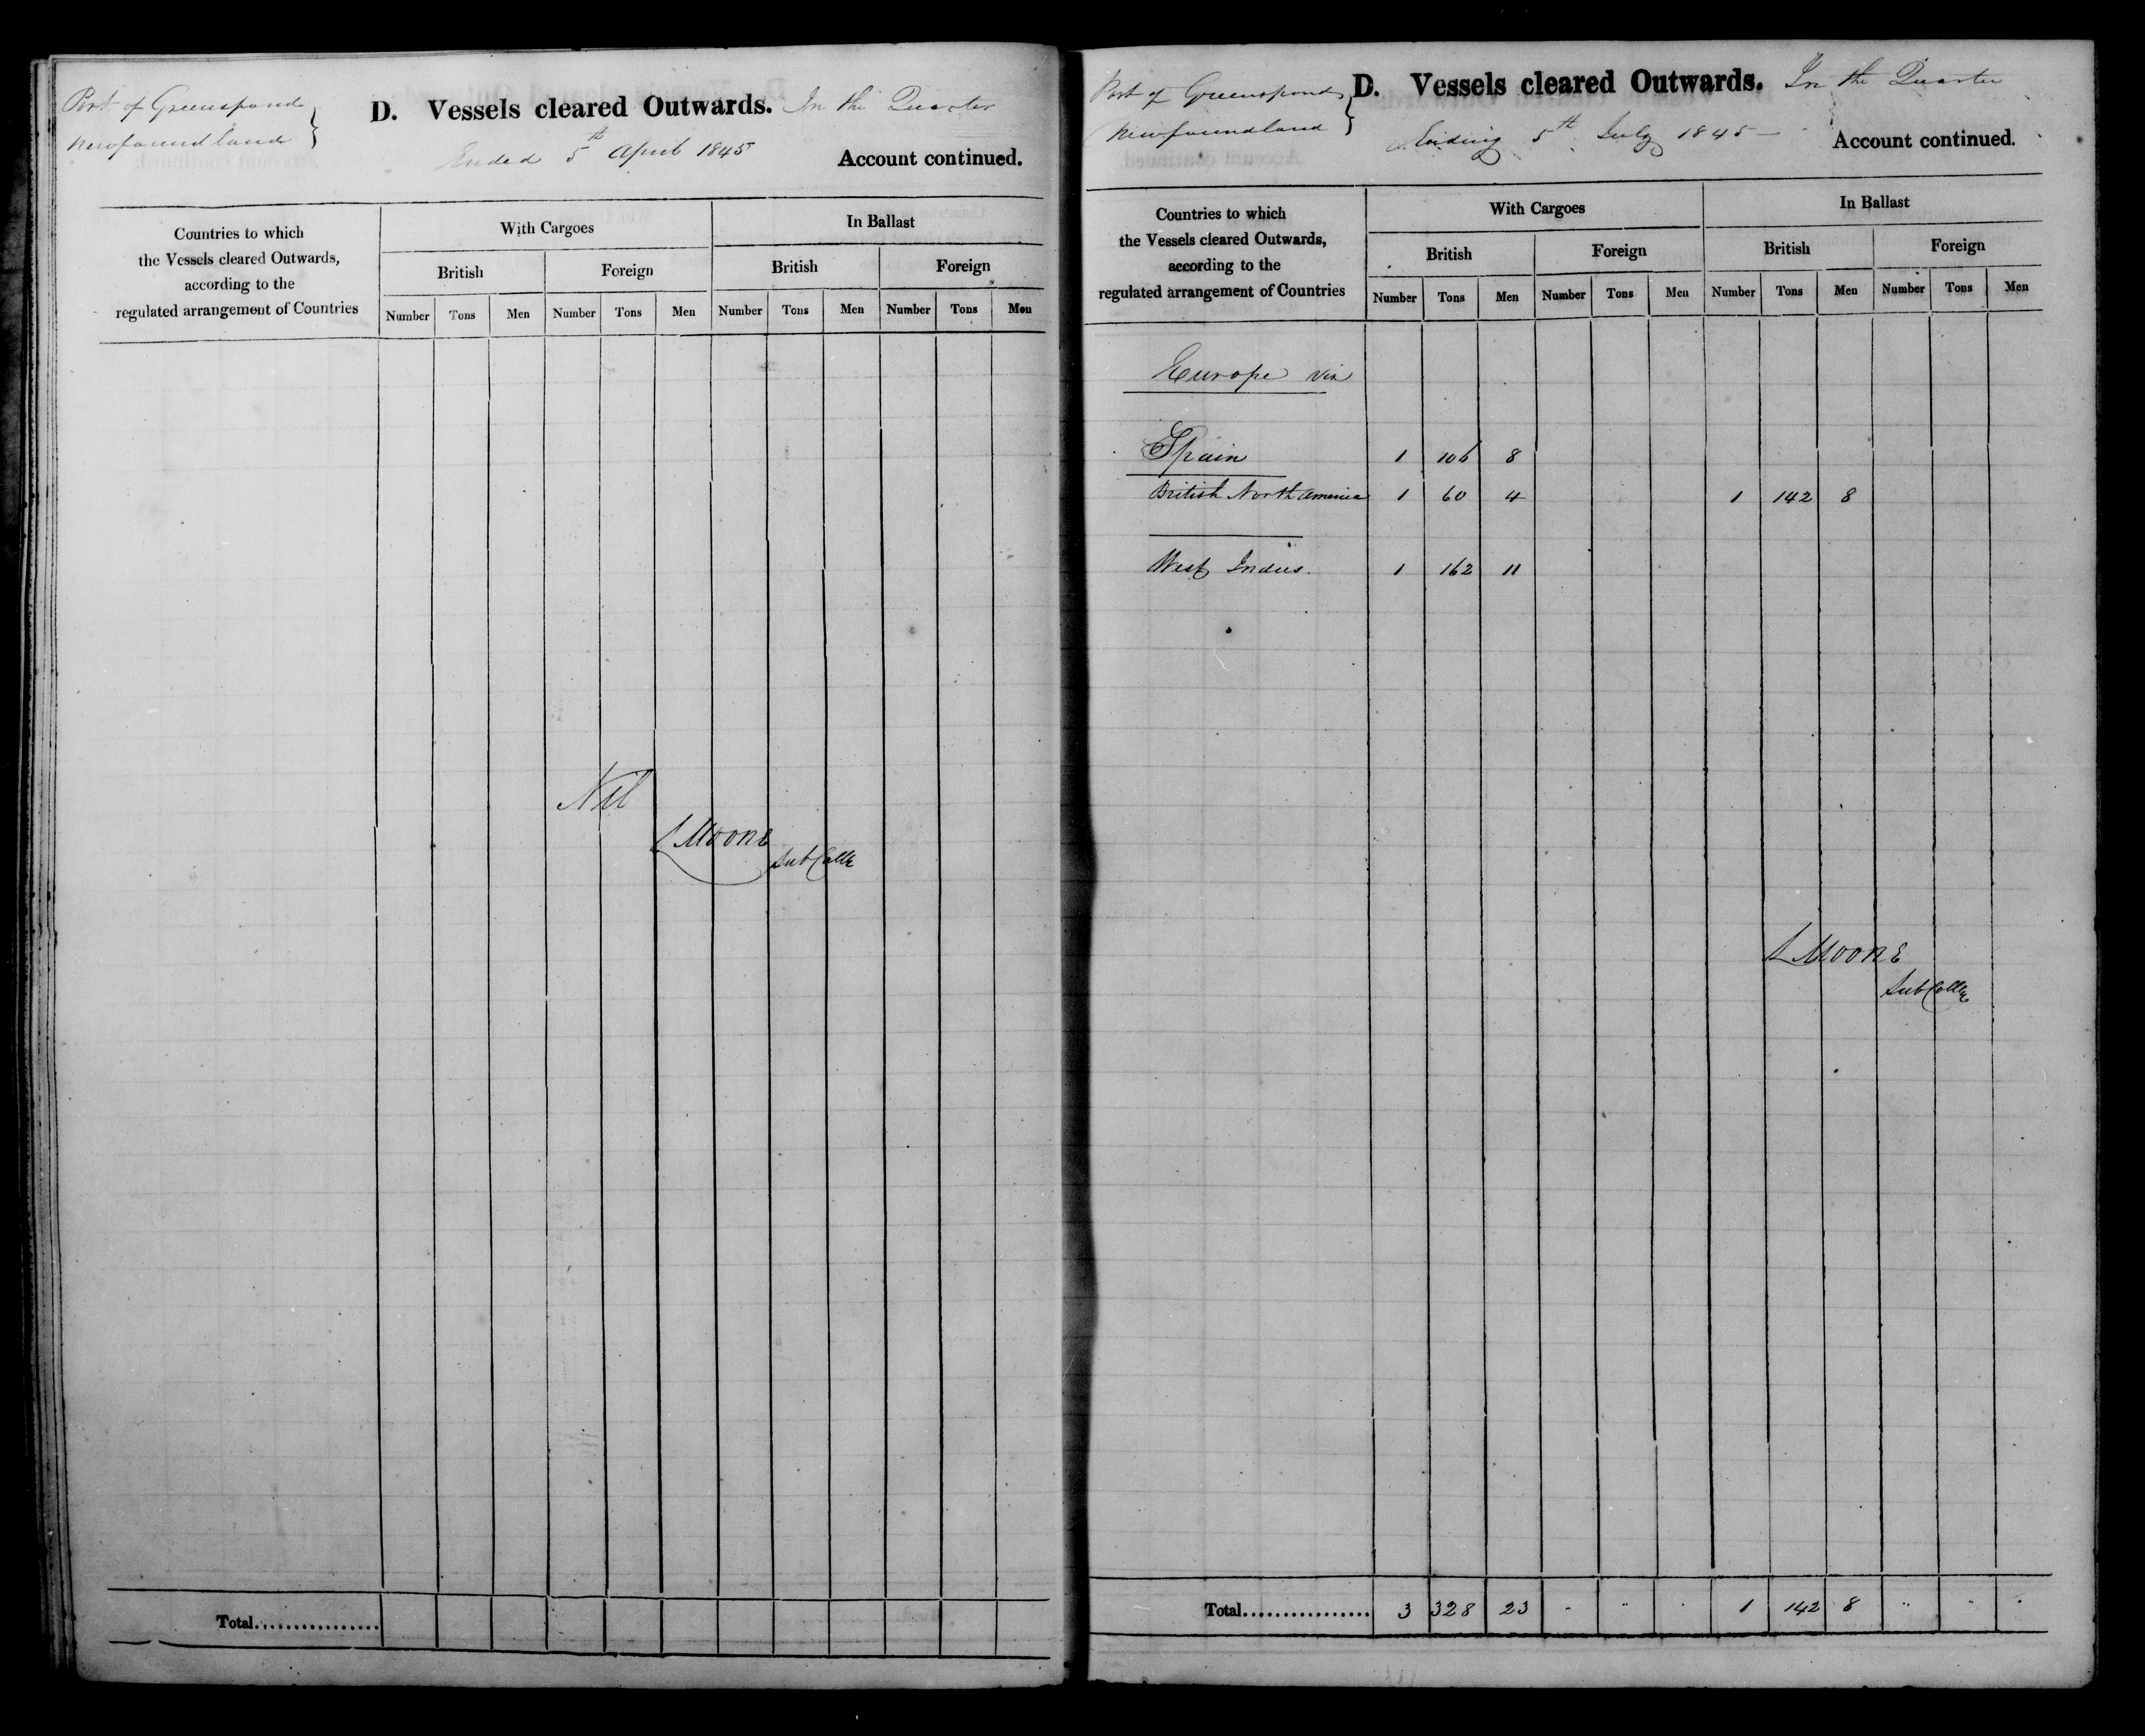 Port of Greenspond
Newfoundland
D. Vessels cleared Outwards. In the Quarter
Ended 5th April 1845
Account continued.
Countries to which
the Vessels cleared Outwards,
according to the
regulated arrangement of Countries
With Cargoes
In Ballast
British
Foreign
British
Foreign
Number Tons Men Number Tons Men Number Tons Men Number Tons Men
Nil
L Moore
Sub Collr
Total
Port of Greenspond
Newfoundland
D. Vessels cleared Outwards. In the Quarter
Ending 5th July 1845
Account continued.
Countries to which
the Vessels cleared Outwards,
according to the
regulated arrangement of Countries
With Cargoes
In Ballast
British
Foreign
British
Foreign
Number Tons Men Number Tons Men Number Tons Men Number Tons Men
Europe viz
Spain 1 106 8
British North America 1 60 4 1 142 8
West Indies. 1 162 11
L Moore
Sub Collr
Total 3 328 23 1 142 8